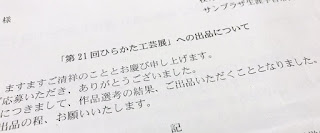 サンプラザ生涯学
様
「第21回ひらかた工芸展」への出品について
ますますご清祥のこととお慶び申し上げます。
応募いただき、ありがとうございました。
につきまして、作品選考の結果、ご出品いただくこととなりました。
出品の程、お願いいたします。
記